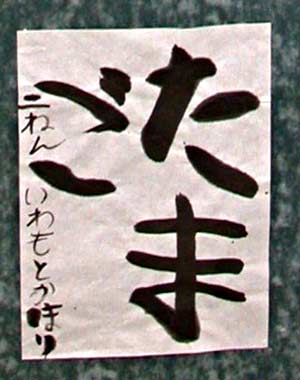 たま
ご
二ねん いわもとかほり